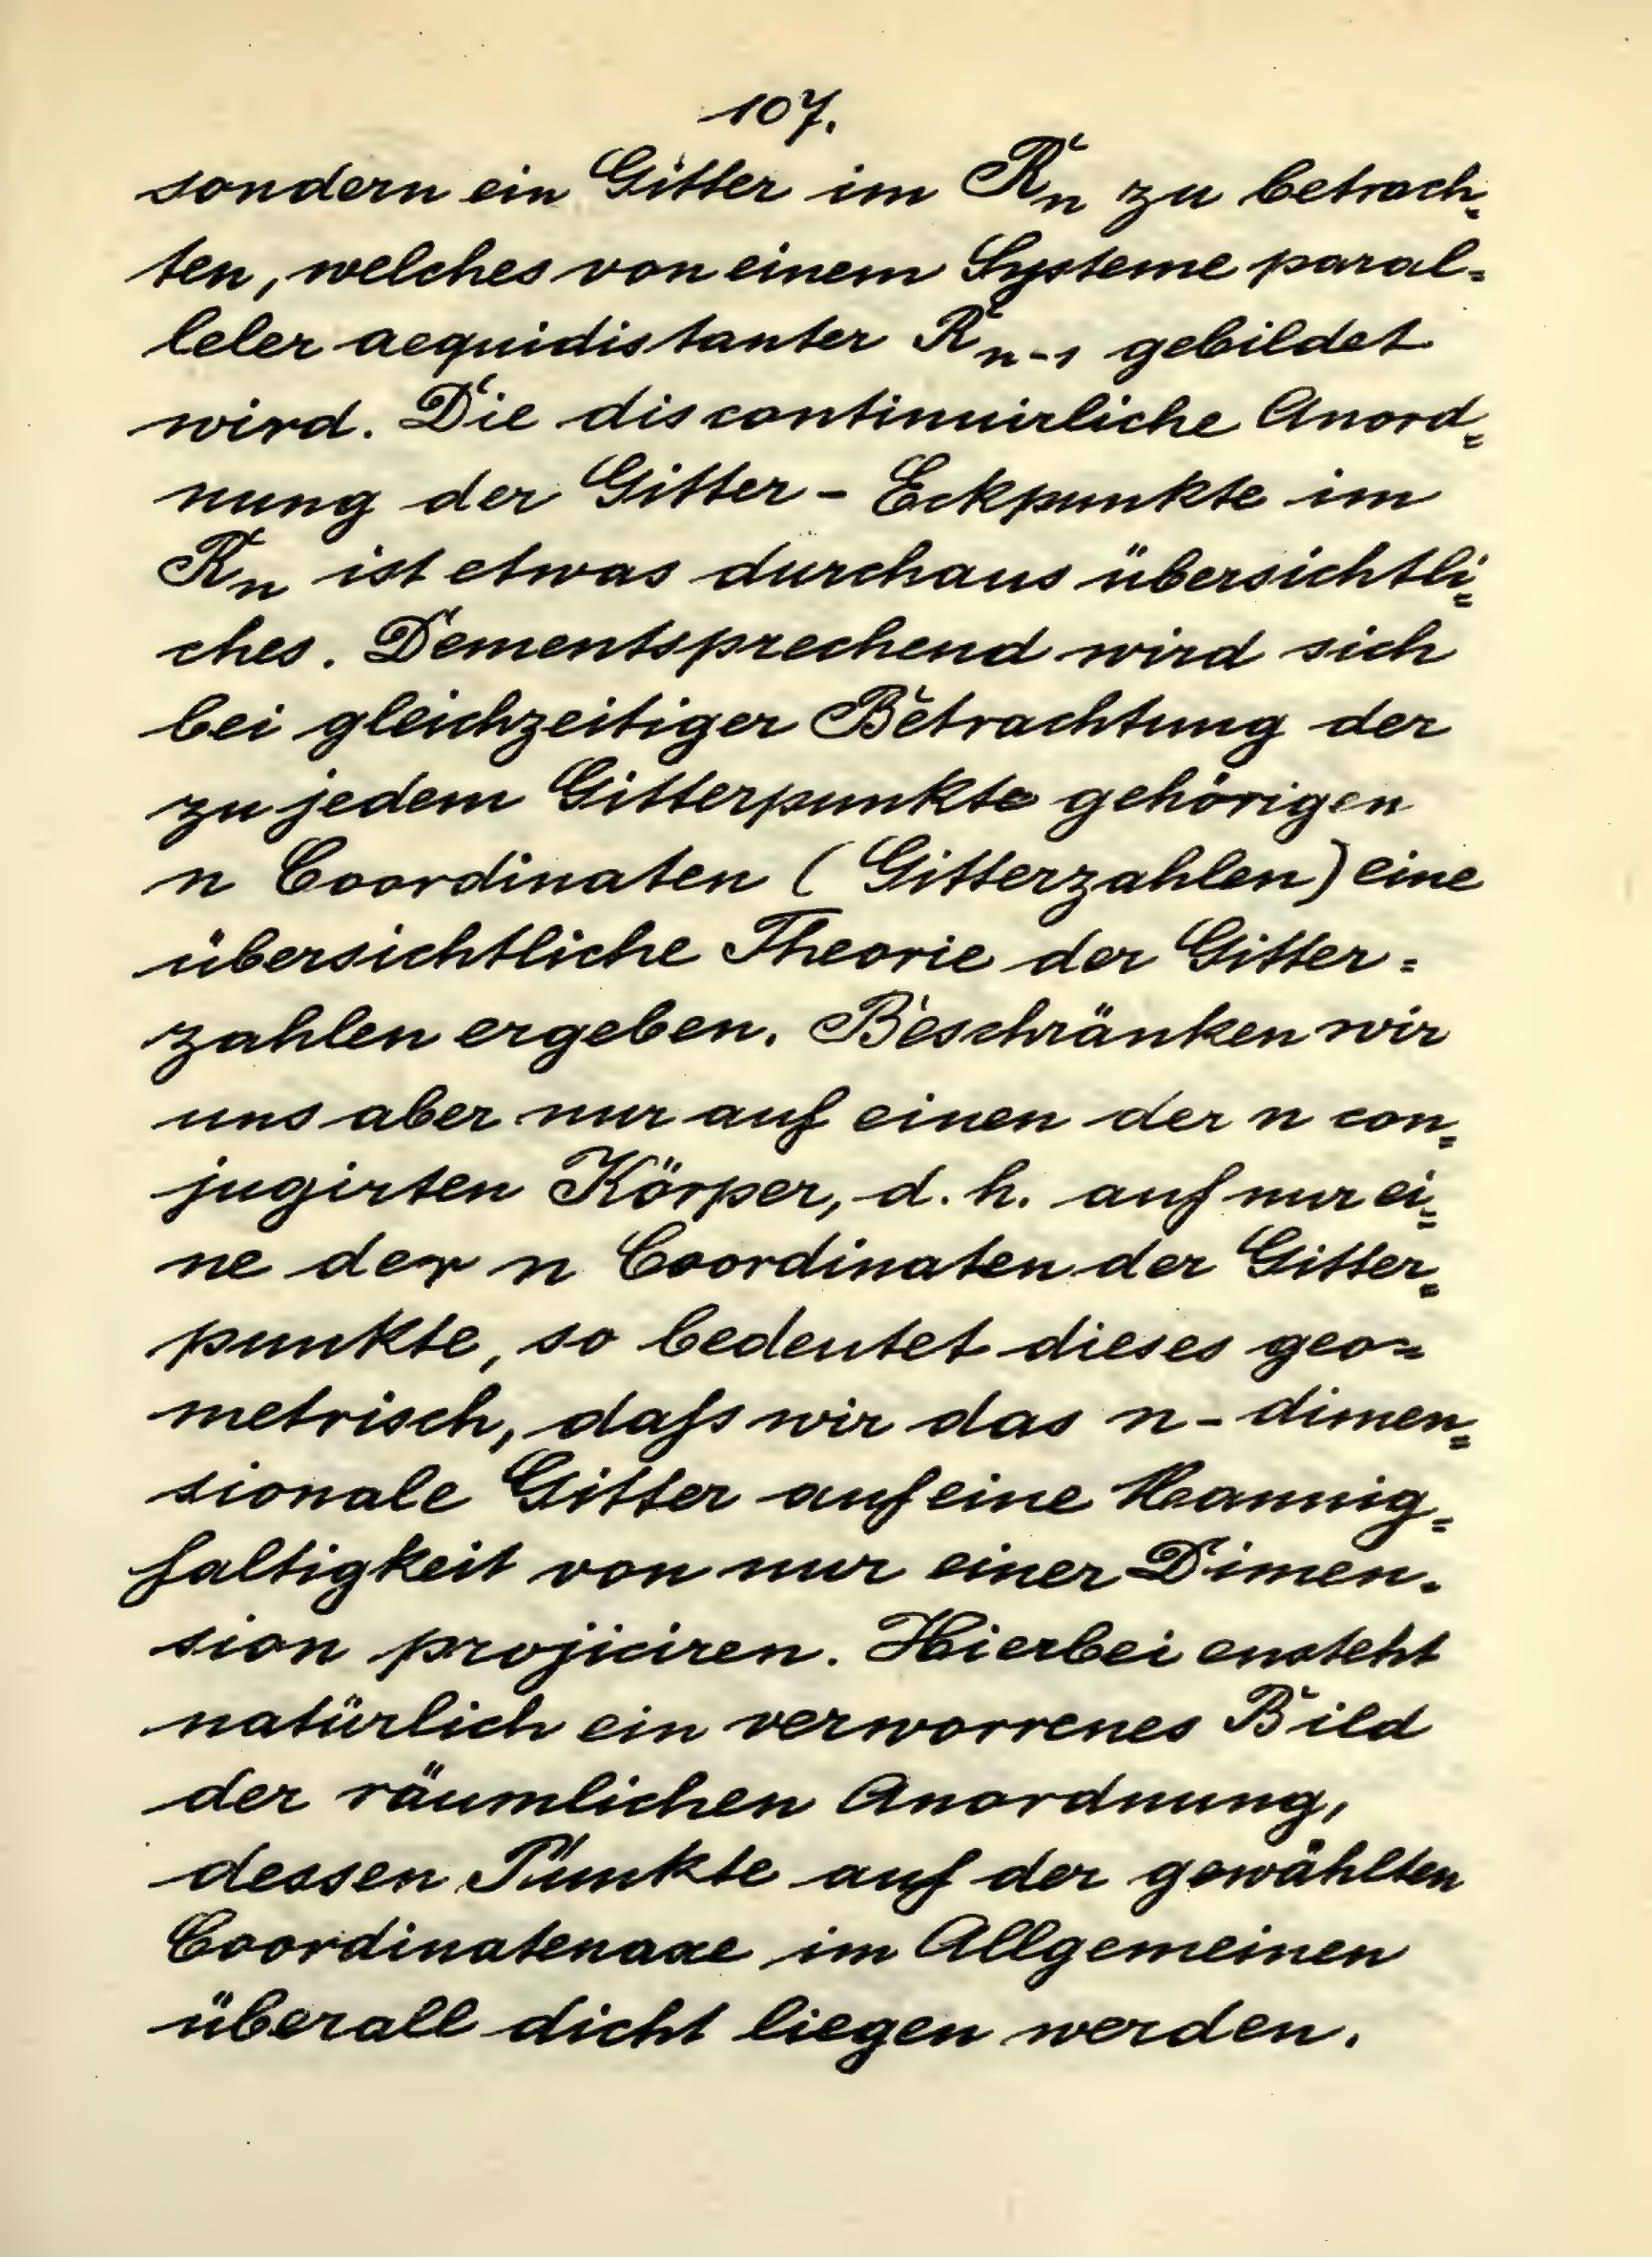 107.
sondern ein Gitter im R_n zu betrach=
ten, welches von einem Systeme paral=
leler aequidistanter R_{n-1} gebildet
wird. Die discontinuirliche Anord=
nung der Gitter-Eckpunkte im
R_n ist etwas durchaus übersichtli=
ches. Dementsprechend wird sich
bei gleichzeitiger Betrachtung der
zu jedem Gitterpunkte gehörigen
n Coordinaten (Gitterzahlen) eine
übersichtliche Theorie der Gitter=
zahlen ergeben. Beschränken wir
uns aber nur auf einen der n con=
jugirten Körper, d. h. auf nur ei=
ne der n Coordinaten der Gitter=
punkte, so bedeutet dieses geo=
metrisch, dafs wir das n-dimen=
sionale Gitter auf eine Mannig=
faltigkeit von nur einer Dimen=
sion projiciren. Hierbei ensteht
natürlich ein verworrenes Bild
der räumlichen Anordnung,
dessen Punkte auf der gewählten
Coordinatenaxe im Allgemeinen
überall dicht liegen werden.